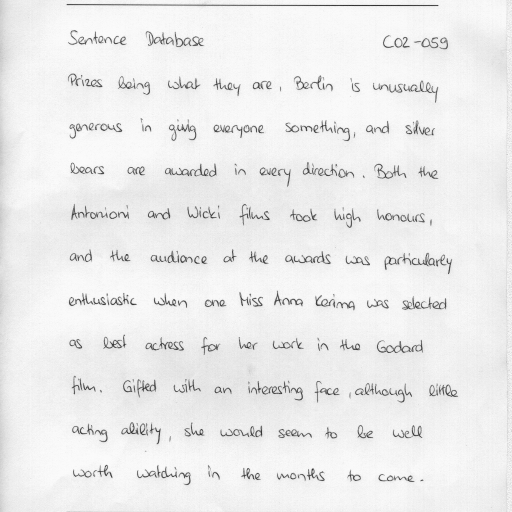 Sentence Database C02-059
Prizes being what they are, Berlin is unusually
generous in givig everyone something, and silver
bears are awarded in every direction. Both the
Antonioni and Wicki films took high honours,
and the audience at the awards was particularly
enthusiastic when one Miss Anna Karima was selected
as best actress for her work in the Godard
film. Gifted with an interesting face, although little
acting ability, she would seem to be well
worth watching in the months to come.